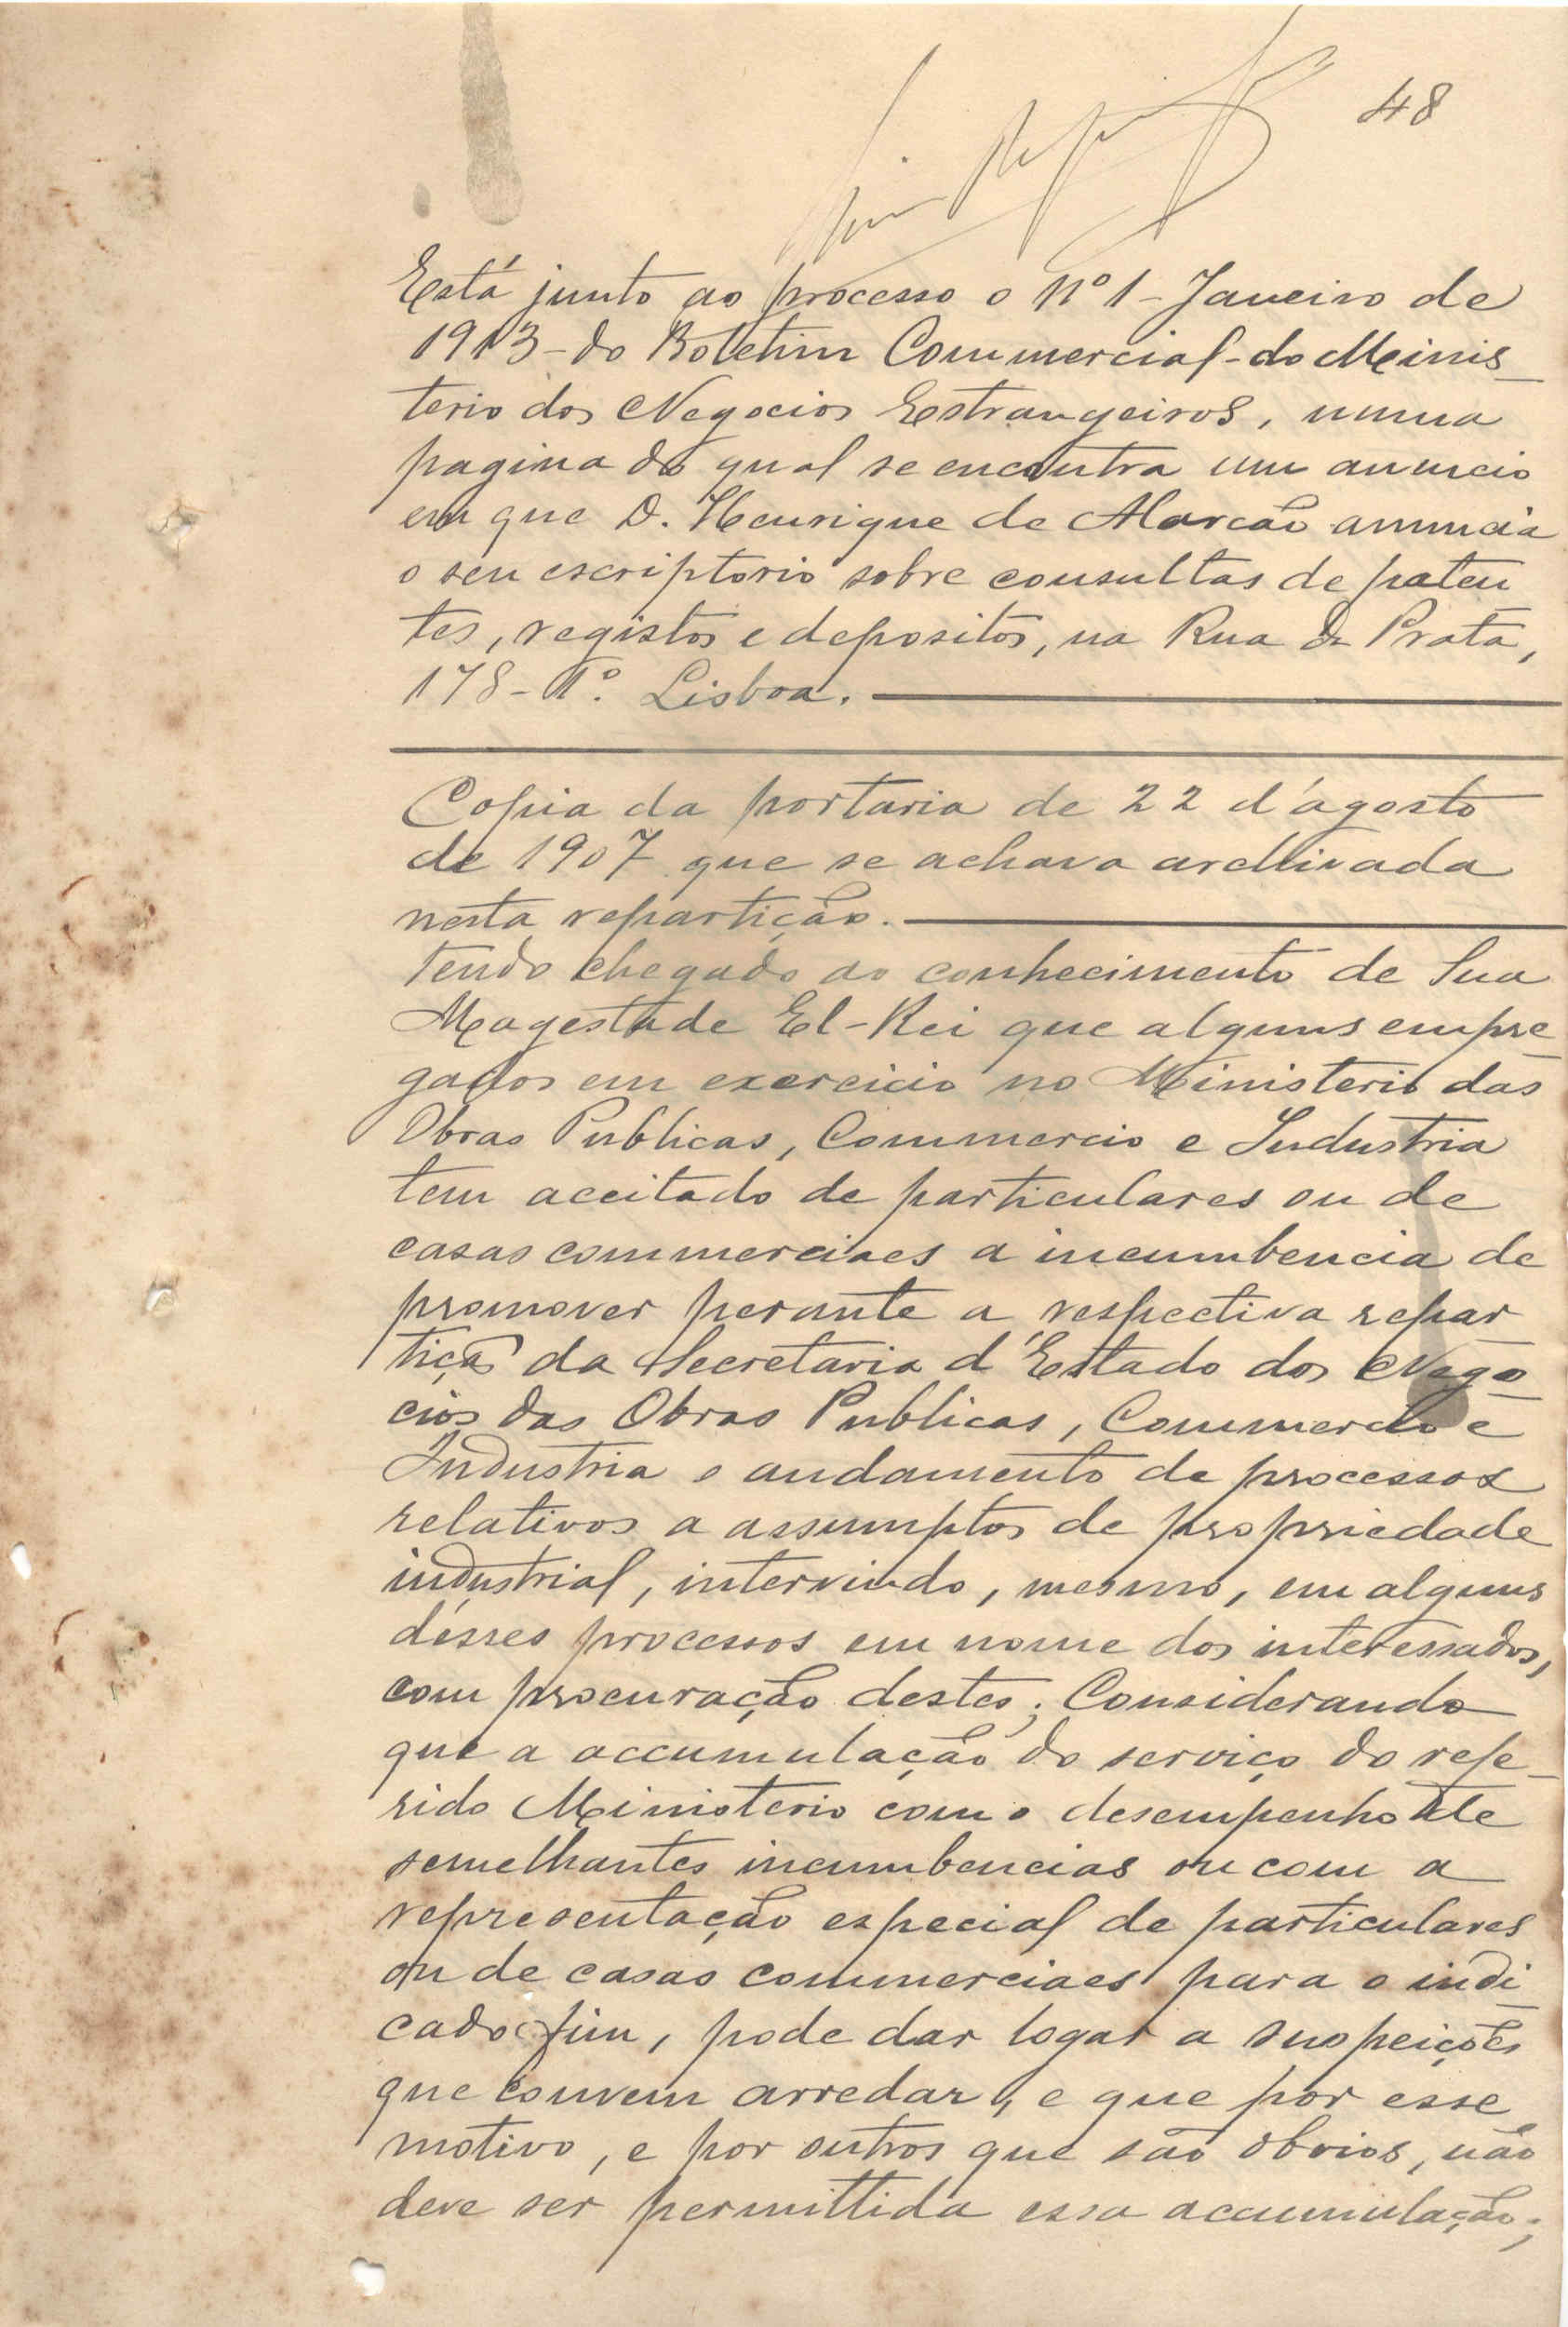 48
Está junto ao processo o nº 1 - Janeiro de
1913 - do Boletim Commercial - do Minis_
terio dos Negocios Estrangeiros, numa
pagina do qual se encontra um anuncio
em que D. Henrique de Alarcão anuncia
o seu escriptorio sobre consultas de paten
tes, registos e depositos, na Rua da Prata,
178 - 1º. Lisboa.
Copia da portaria de 22 d'agosto
de 1907 que se achava archivada
nesta repartição.
Tendo chegado ao conhecimento de Sua
Magestade El-Rei que alguns empre_
gados em exercicio no Ministerio das
Obras Publicas, Commercio e Industria
tem aceitado de particulares ou de
casas commerciaes a incumbencia de
promover perante a respectiva repar
tição da Secretaria d'Estado dos Nego_
cios das Obras Publicas, Commercio e
Industria o andamento de processos
relativos a assumptos de propriedade
industrial, intervindo, mesmo, em alguns
désses processos em nome dos interessados,
com procuração destes; Considerando
que a accumulação do serviço do refe_
rido Ministerio com o desempenho de
semelhantes incumbencias ou com a
representação especial de particulares
ou de casas commerciaes para o indi_
cado fim, pode dar logar a suspeições
que convem arredar, e que por esse
motivo, e por outros que são obvios, não
deve ser permittida essa accumulação;